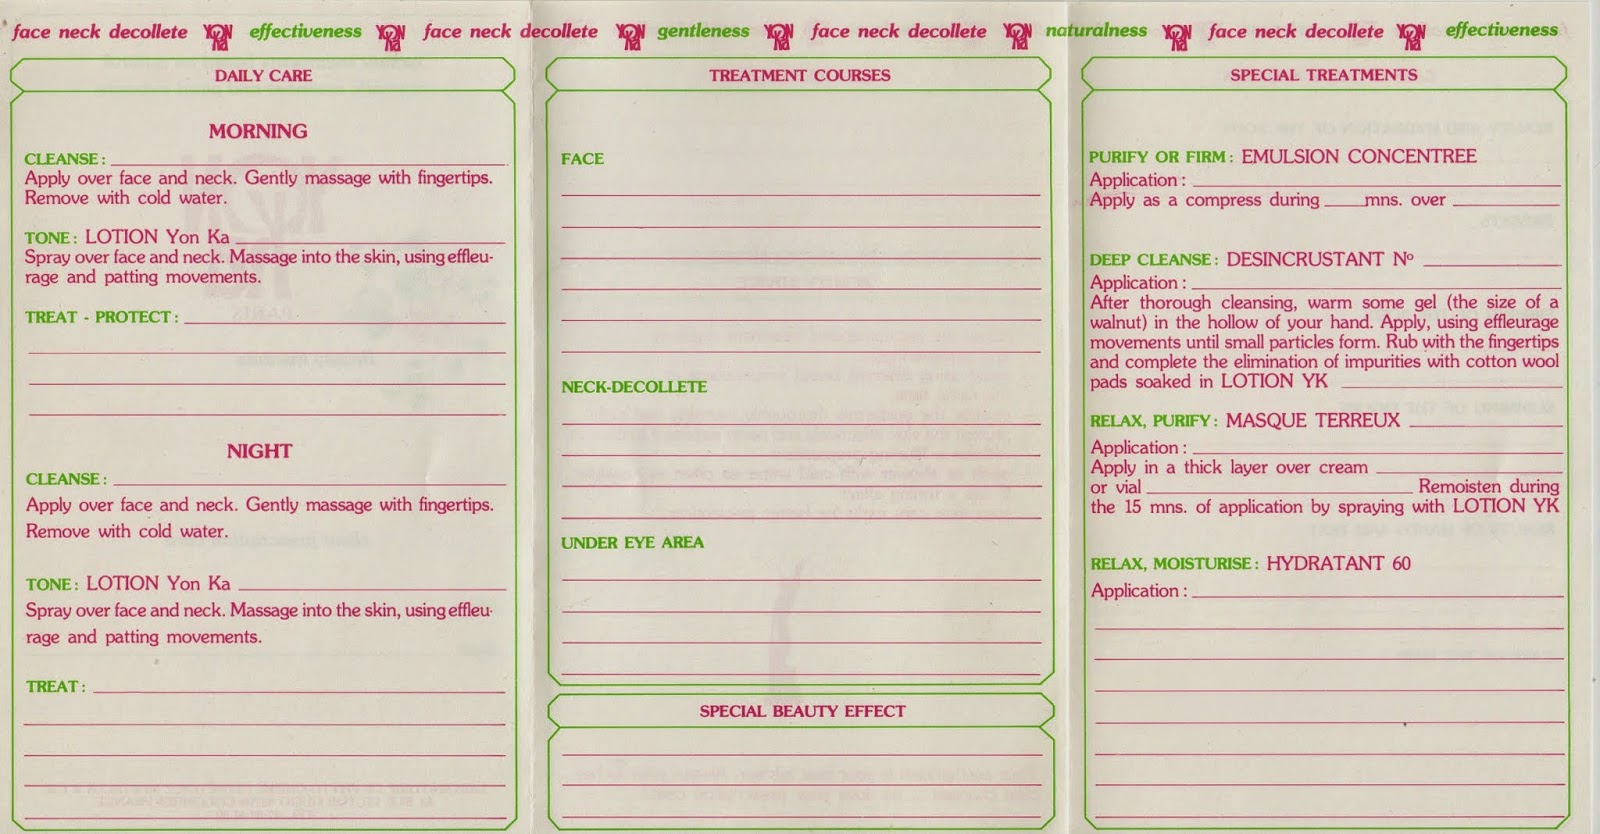 face neck decollete YON Ka effectiveness YON Ka face neck decollete YON Ka gentleness YON Ka face neck decollete YON Ka naturalness YON Ka face neck decollete YON Ka effectiveness
DAILY CARE
MORNING
CLEANSE :
Apply over face and neck. Gently massage with fingertips.
Remove with cold water.
TONE : LOTION Yon Ka
Spray over face and neck. Massage into the skin, using effleu-
rage and patting movements.
TREAT - PROTECT :
NIGHT
CLEANSE :
Apply over face and neck. Gently massage with fingertips.
Remove with cold water.
TONE : LOTION Yon Ka
Spray over face and neck. Massage into the skin, using effleu-
rage and patting movements.
TREAT :
TREATMENT COURSES
FACE
NECK-DECOLLETE
UNDER EYE AREA
SPECIAL BEAUTY EFFECT
SPECIAL TREATMENTS
PURIFY OR FIRM : EMULSION CONCENTREE
Application :
Apply as a compress during mns. over
DEEP CLEANSE : DESINCRUSTANT Nº
Application :
After thorough cleansing, warm some gel (the size of a
walnut) in the hollow of your hand. Apply, using effleurage
movements until small particles form. Rub with the fingertips
and complete the elimination of impurities with cotton wool
pads soaked in LOTION YK
RELAX, PURIFY : MASQUE TERREUX
Application :
Apply in a thick layer over cream
or vial Remoisten during
the 15 mns. of application by spraying with LOTION YK
RELAX, MOISTURISE : HYDRATANT 60
Application :